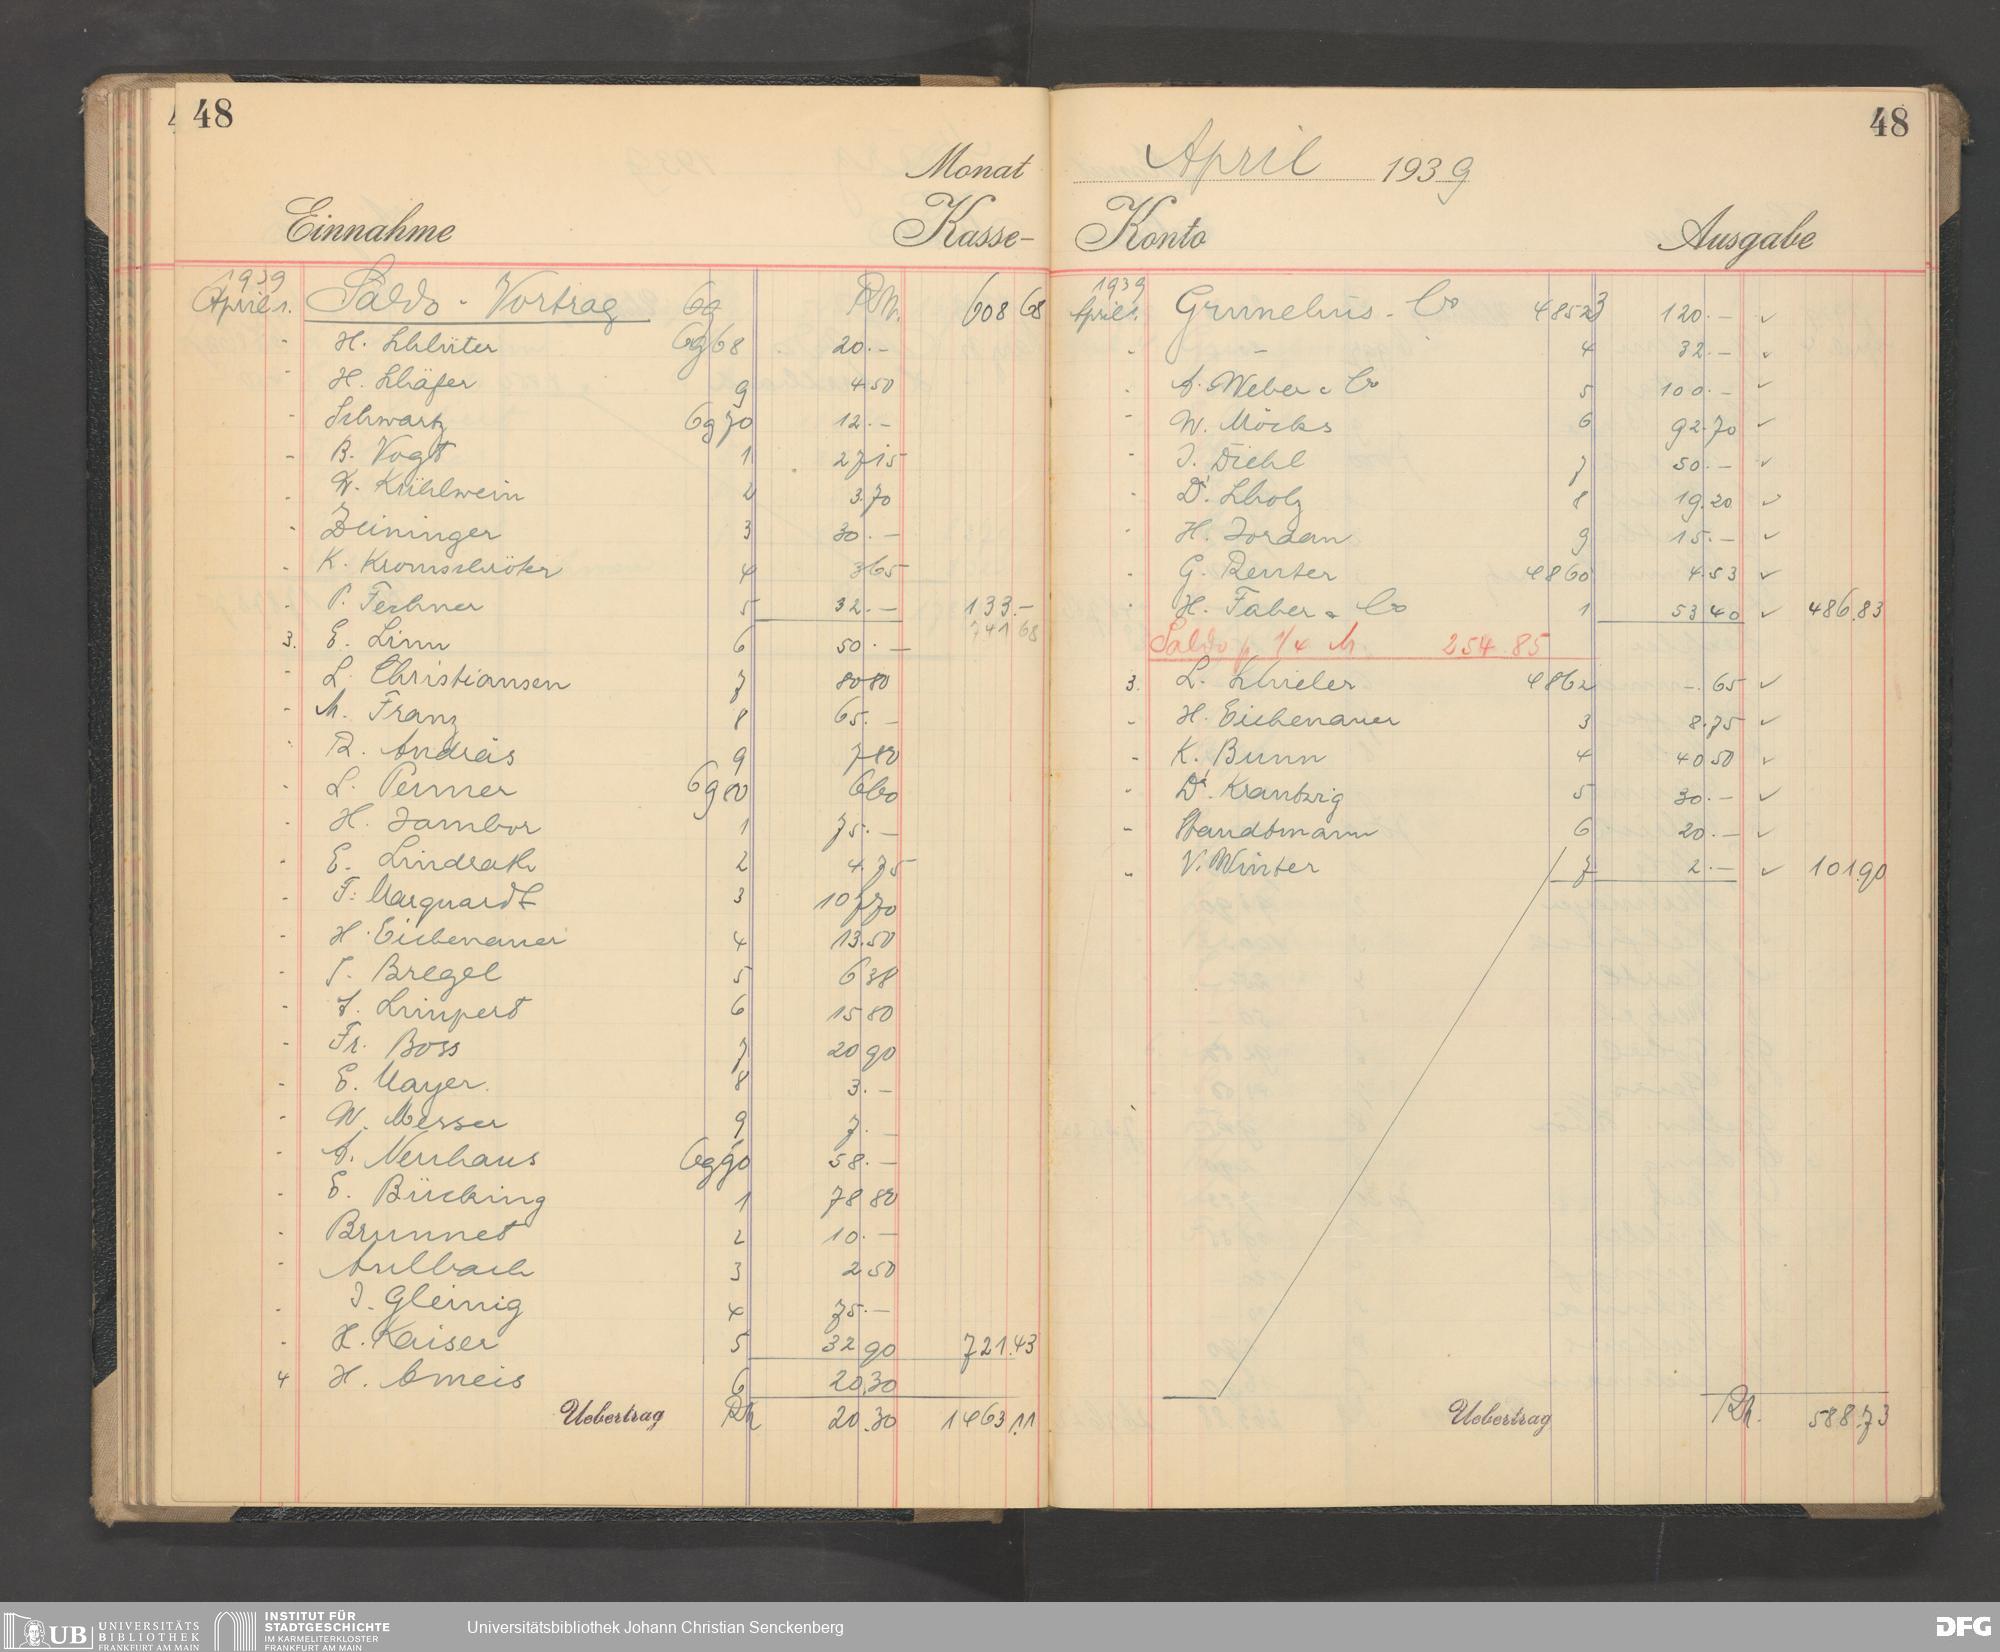 48
Monat
Einnahme Kasse-
1939
April 1. Saldo-Vortrag 69 RM. 608 68
- H. Schlüter 6968 20.-
- H. Schäfer 9 4.50
- Schwartz 6970 12.-
- B. Vogt 1 27 15
- W. Kühlwein 2 3.70
- Deininger 3 30.-
- K. Kromschröter 4 3 65
- P. Fechner 5 32.- 133.-
741 68
3. E. Linn 6 50.-
- L. Christiansen 7 80 80
- M. Franz 8 65.-
- R. Andreas 9 7 80
- L. 6980 6 60
- H. Jambor 1 75.-
- E. Lindrath 2 4.75
- F. Marquardt 3 107 70
- H. Eichenauer 4 13.50
- J. Bregel 5 6 38
- J. Limpert 6 15 80
- Fr. Boss 7 20 90
- E. Mayer. 8 3.-
- W. Messer 9 7.-
- A. Neuhaus 6990 58.-
- E. Bücking 1 78 80
- Brunnet 2 10.-
- Aulbach 3 2 50
- J. Gleinig 4 75.-
- H. Kaiser 5 32 90 721.43
4 H. Ameis 6 20.30
Uebertrag RM 20.30 1463.11
48
April 1939
Konto Ausgabe
1939
April 1. Grunelius & Co 48523 120.- ✓
- - 4 32.- ✓
- A. Weber & Co 5 100.- ✓
- W. Möcks 6 92.70 ✓
- J. Diehl 7 50.- ✓
- Dr. Scholz 8 19.20 ✓
- H. Jordan 9 15.- ✓
- G. Reuter 4860 4.53 ✓
- H. Faber & Co 1 53 40 ✓ 486.83
Saldo p 1/4 M 254.85
3. L. 4862 -.65 ✓
- H. Eichenauer 3 8.75 ✓
- K. Bunn 4 40 50 ✓
- Dr. Krantzig 5 30.- ✓
- Wandtmann 6 20.- ✓
- V. Winter 7 2.- ✓ 101.90
Uebertrag RM. 588.73
UB UNIVERSITÄTS
BIBLIOTHEK
FRANKFURT AM MAIN
INSTITUT FÜR
STADTGESCHICHTE
IM KARMELITERKLOSTER
FRANKFURT AM MAIN
Universitätsbibliothek Johann Christian Senckenberg
DFG